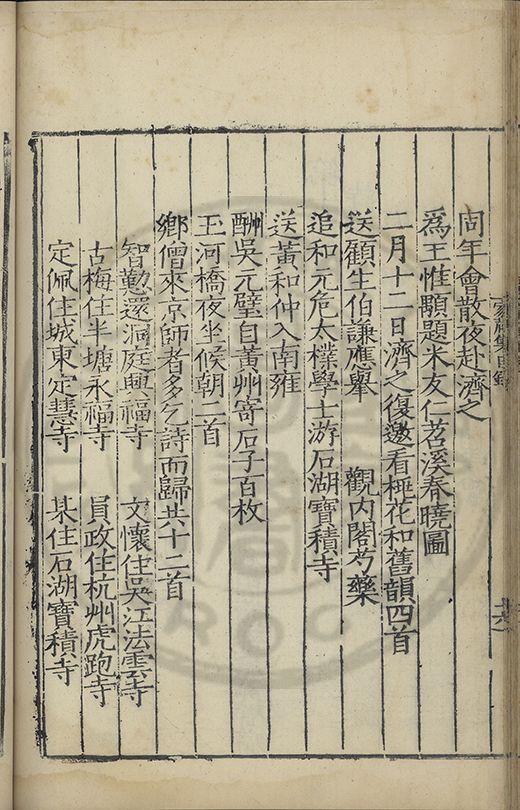 同年會散夜赴濟之
為王惟顒題米友仁苕溪春曉圖
二月十二日濟之復邀看梅花和舊韻四首
送顧生伯謙應舉 觀內閣芍藥
追和元危太樸學士游石湖寶積寺
送黃和仲入南雍
酬吳元璧自黃州寄石子百枚
玉河橋夜坐候朝二首
鄉僧來京師者多乞詩而歸共十二首
智勤還洞庭興福寺 文懷住吳江法雲寺
古梅住半塘永福寺 員政住杭州虎跑寺
定佩住城東定慧寺 某住石湖寶積寺
家藏集目錄